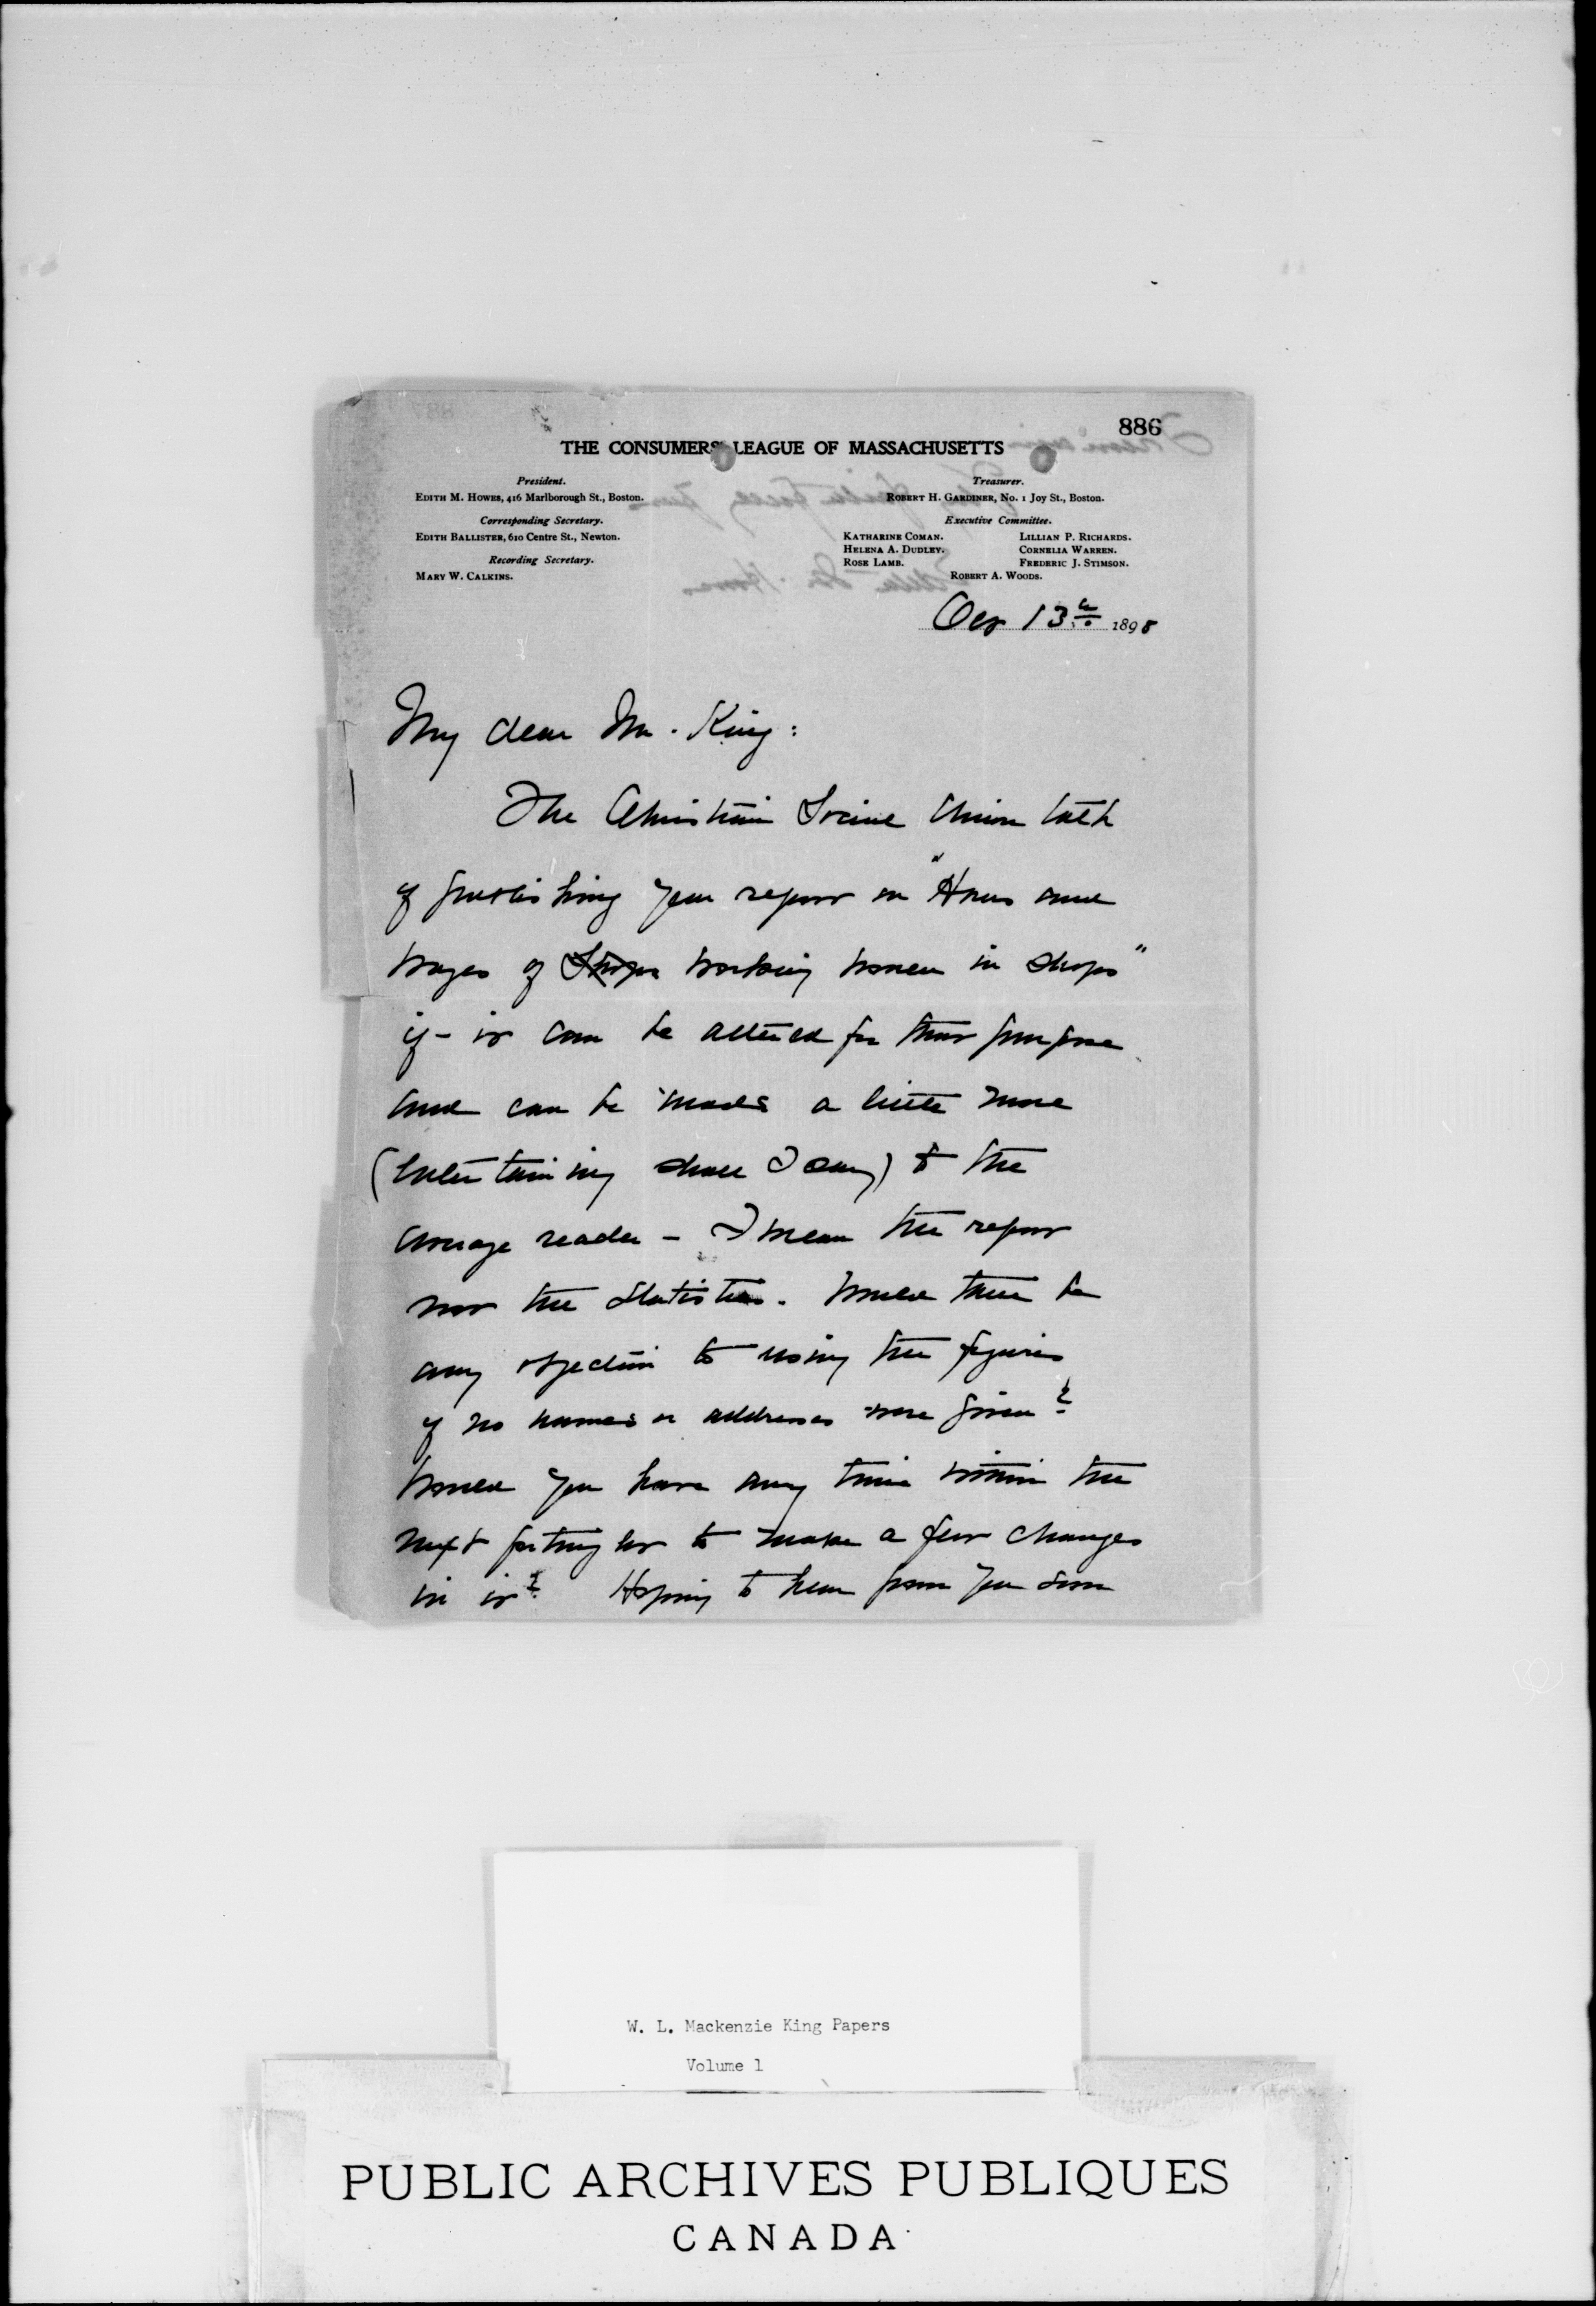 886
THE CONSUMERS' LEAGUE OF MASSACHUSETTS
President.
EDITH M. HOWES, 416 Marlborough St., Boston.
Corresponding Secretary.
EDITH BALLISTER, 610 Centre St., Newton.
Recording Secretary.
MARY W. CALKINS.
Treasurer.
ROBERT H. GARDINER, No. 1 Joy St., Boston.
Executive Committee.
KATHARINE COMAN. LILLIAN P. RICHARDS.
HELENA A. DUDLEY. CORNELIA WARREN.
ROSE LAMB. FREDERIC J. STIMSON.
ROBERT A. WOODS.
Oct 13th 1898
My dear Mr. King:
The Christian Social Union talk
of publishing your report on "Hours and
wages of working women in shops"
if - it can be altered for their purpose
and can be made a little more
(entertaining shall I say) to the
average reader - I mean the report
not the statistics. Would there be
any objection to using the figures
if no names or addresses were given?
Would you have any time within the
next fortnight to make a few changes
in it? Hoping to hear from you soon
W. L. Mackenzie King Papers
Volume 1
PUBLIC ARCHIVES PUBLIQUES
CANADA